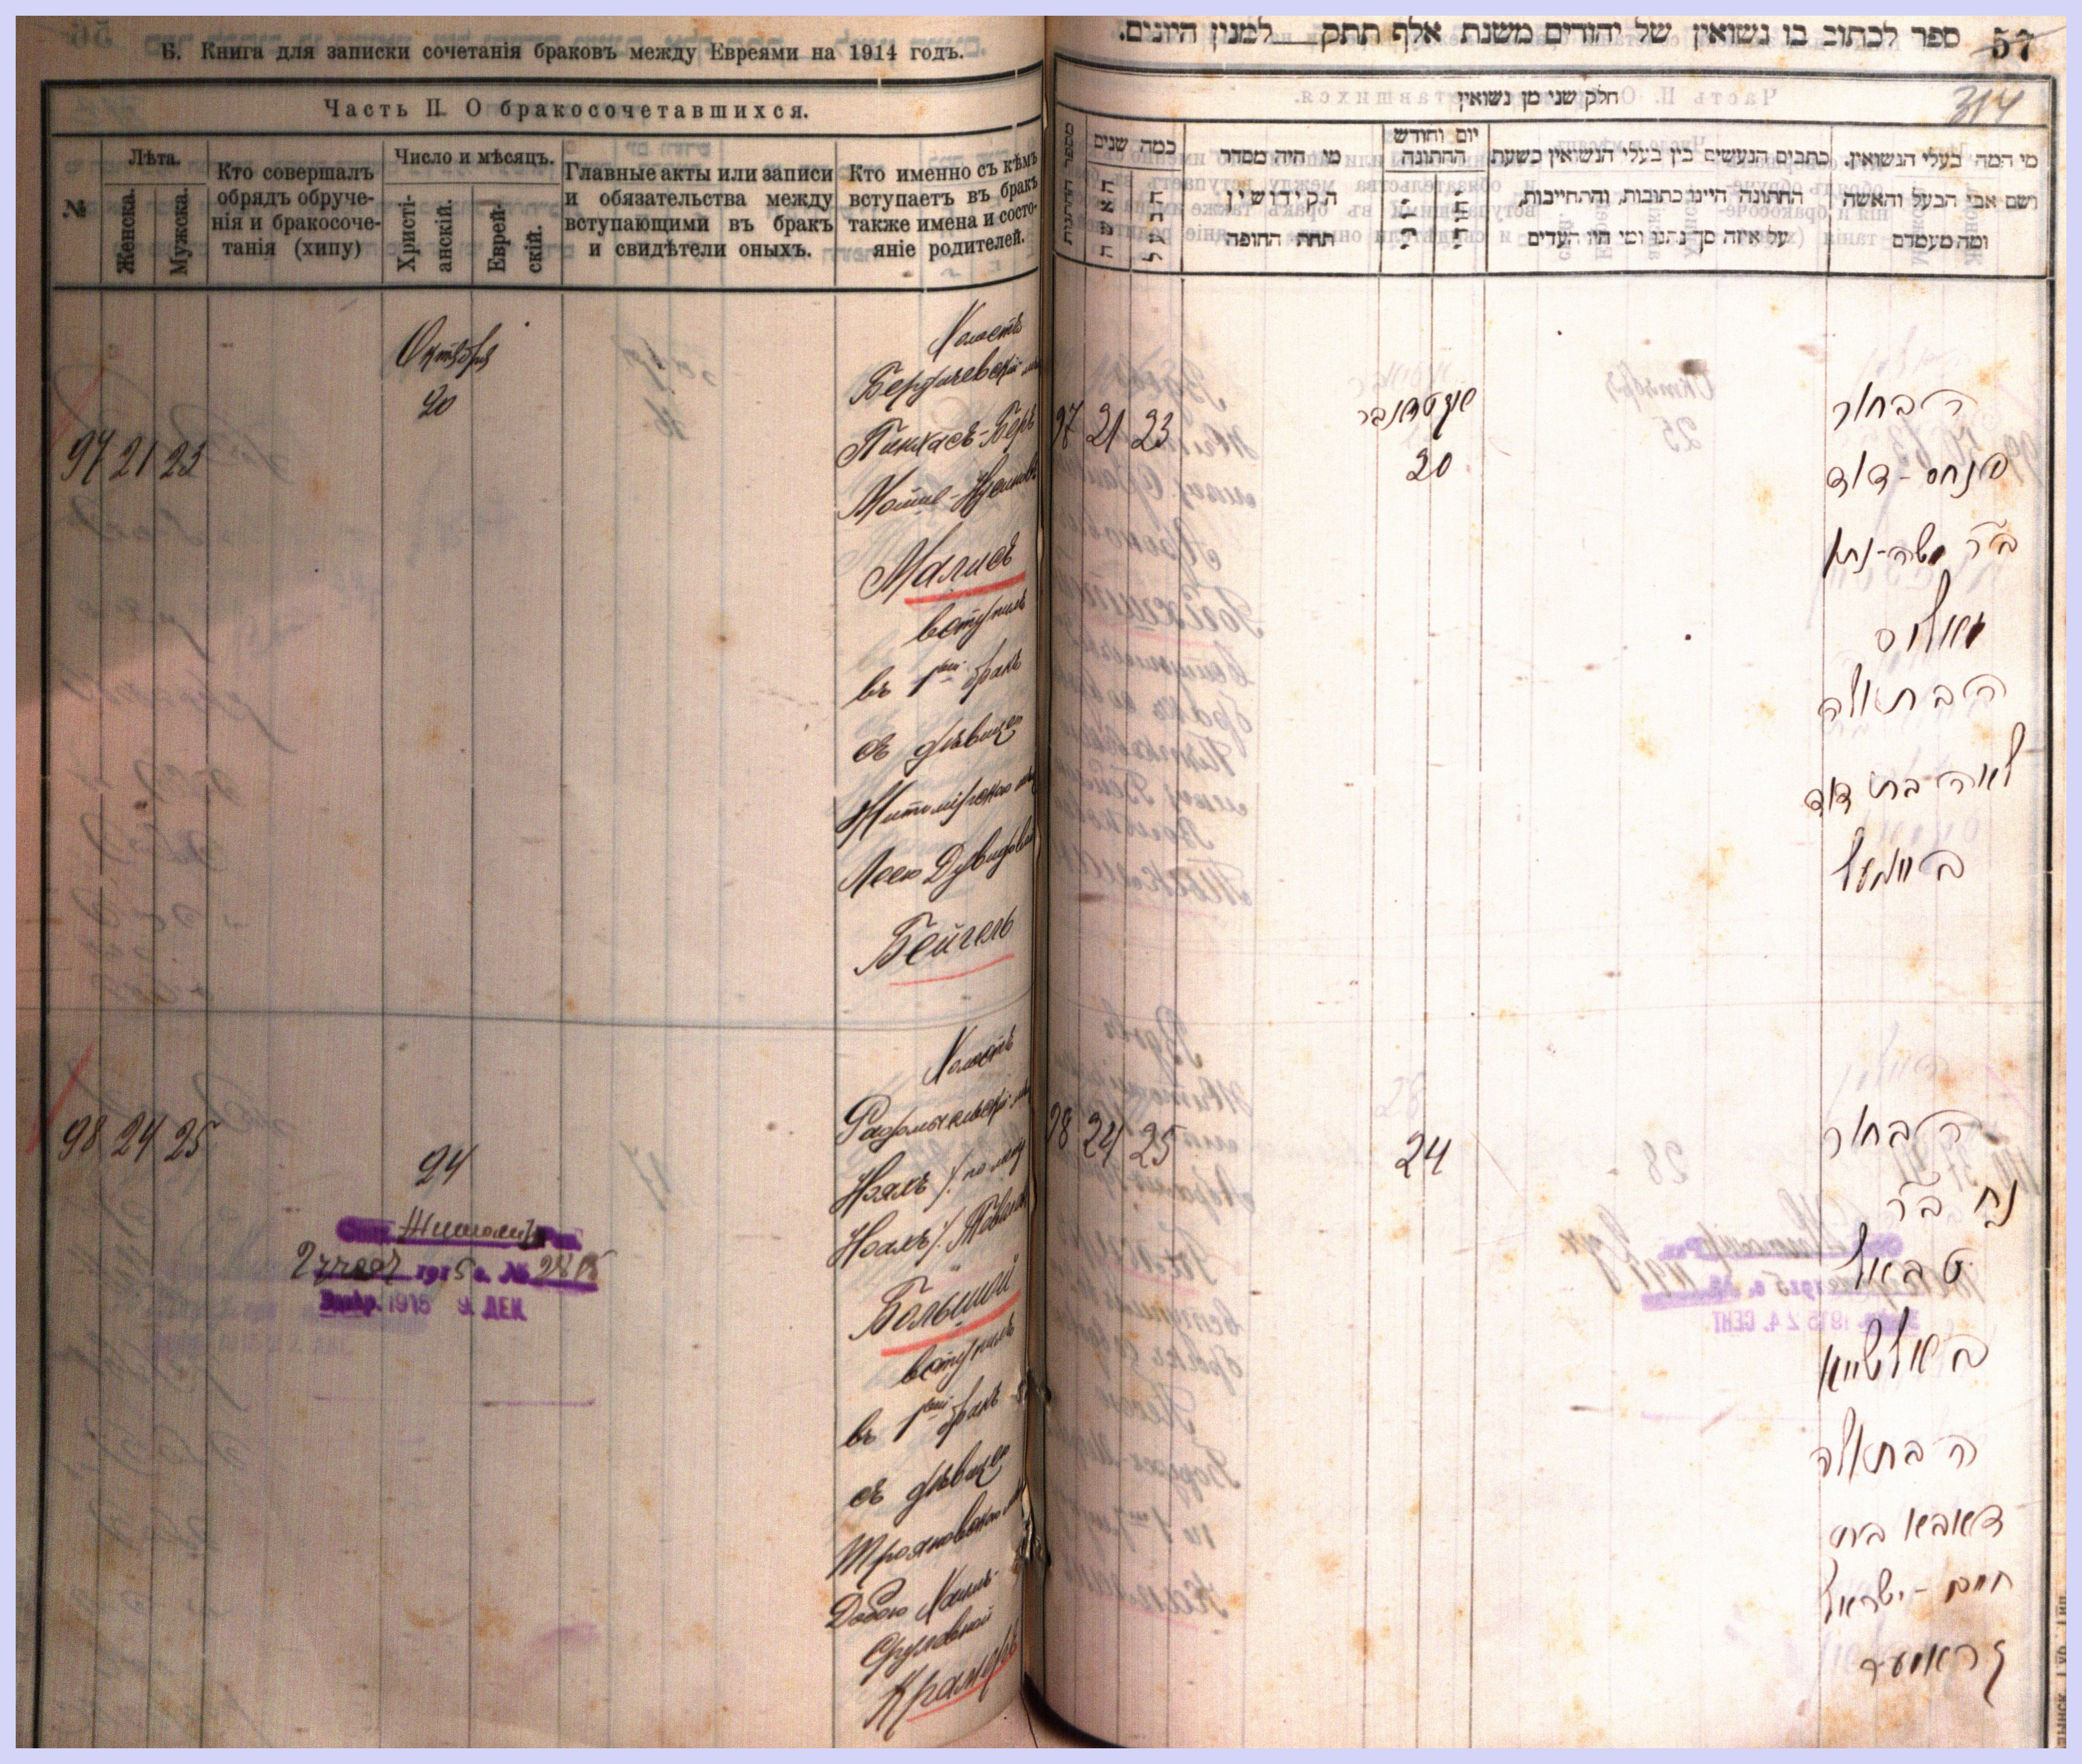 Б. Книга для записки сочетанія браковъ между Евреями на 1914 годъ.
Часть II. О бракосочетавшихся.
№
Лѣта.
Женска.
Мужска.
Кто совершалъ
обрядъ обруче-
нія и бракосоче-
танія (хипу)
Число и мѣсяцъ.
Христі-
анскій.
Еврей-
скій.
Главные акты или записи
и обязательства между
вступающими въ бракъ
и свидѣтели оныхъ.
Кто именно съ кѣмъ
вступаетъ въ бракъ
также имена и состо-
яніе родителей.
97 21 23
Октября
20
Холостъ
Бердичевскій
Пинхасъ-Беръ
Малисъ
вступилъ
въ 1ый бракъ
съ дѣвицею
Житомірскою
Лею Дувидовной
Бейгель
98 24 25
24
Житомір
1915 г. №
1915 9. ДЕК
Холостъ
Большой
вступилъ
въ 1ый бракъ
съ дѣвицею
Трояновскою
Добою Хаимъ-
Сруловной
Крамеръ
ספר לכתוב בו נשואין של יהודים משנת אלף תתק למנין היונים.
57
314
חלק שני מן נשואין
מספר החתונות
כמה שנים
האשה
הבעל
מי היה מסדר
הקידושין
תחת החופה
יום וחודש
החתונה
כתבים הנעשים בין בעלי הנשואין בשעת
החתונה היינו כתובות, והתחייבות,
על איזה סך נתנו ומי היו העדים
מי המה בעלי הנשואין.
ושם אבי הבעל והאשה
ומה מעמדם
97 21 23
אקטאבר
20
הבחור
פנחס-דוד
ב"ר משה-נתן
מאליס
הבתולה
לאה בת דוד
בייגעל
98 24 25
24
הבחור
נח ב"ר
טביאל
באלשייא
הבתולה
דאבא בת
חיים-ישראל
קראמער